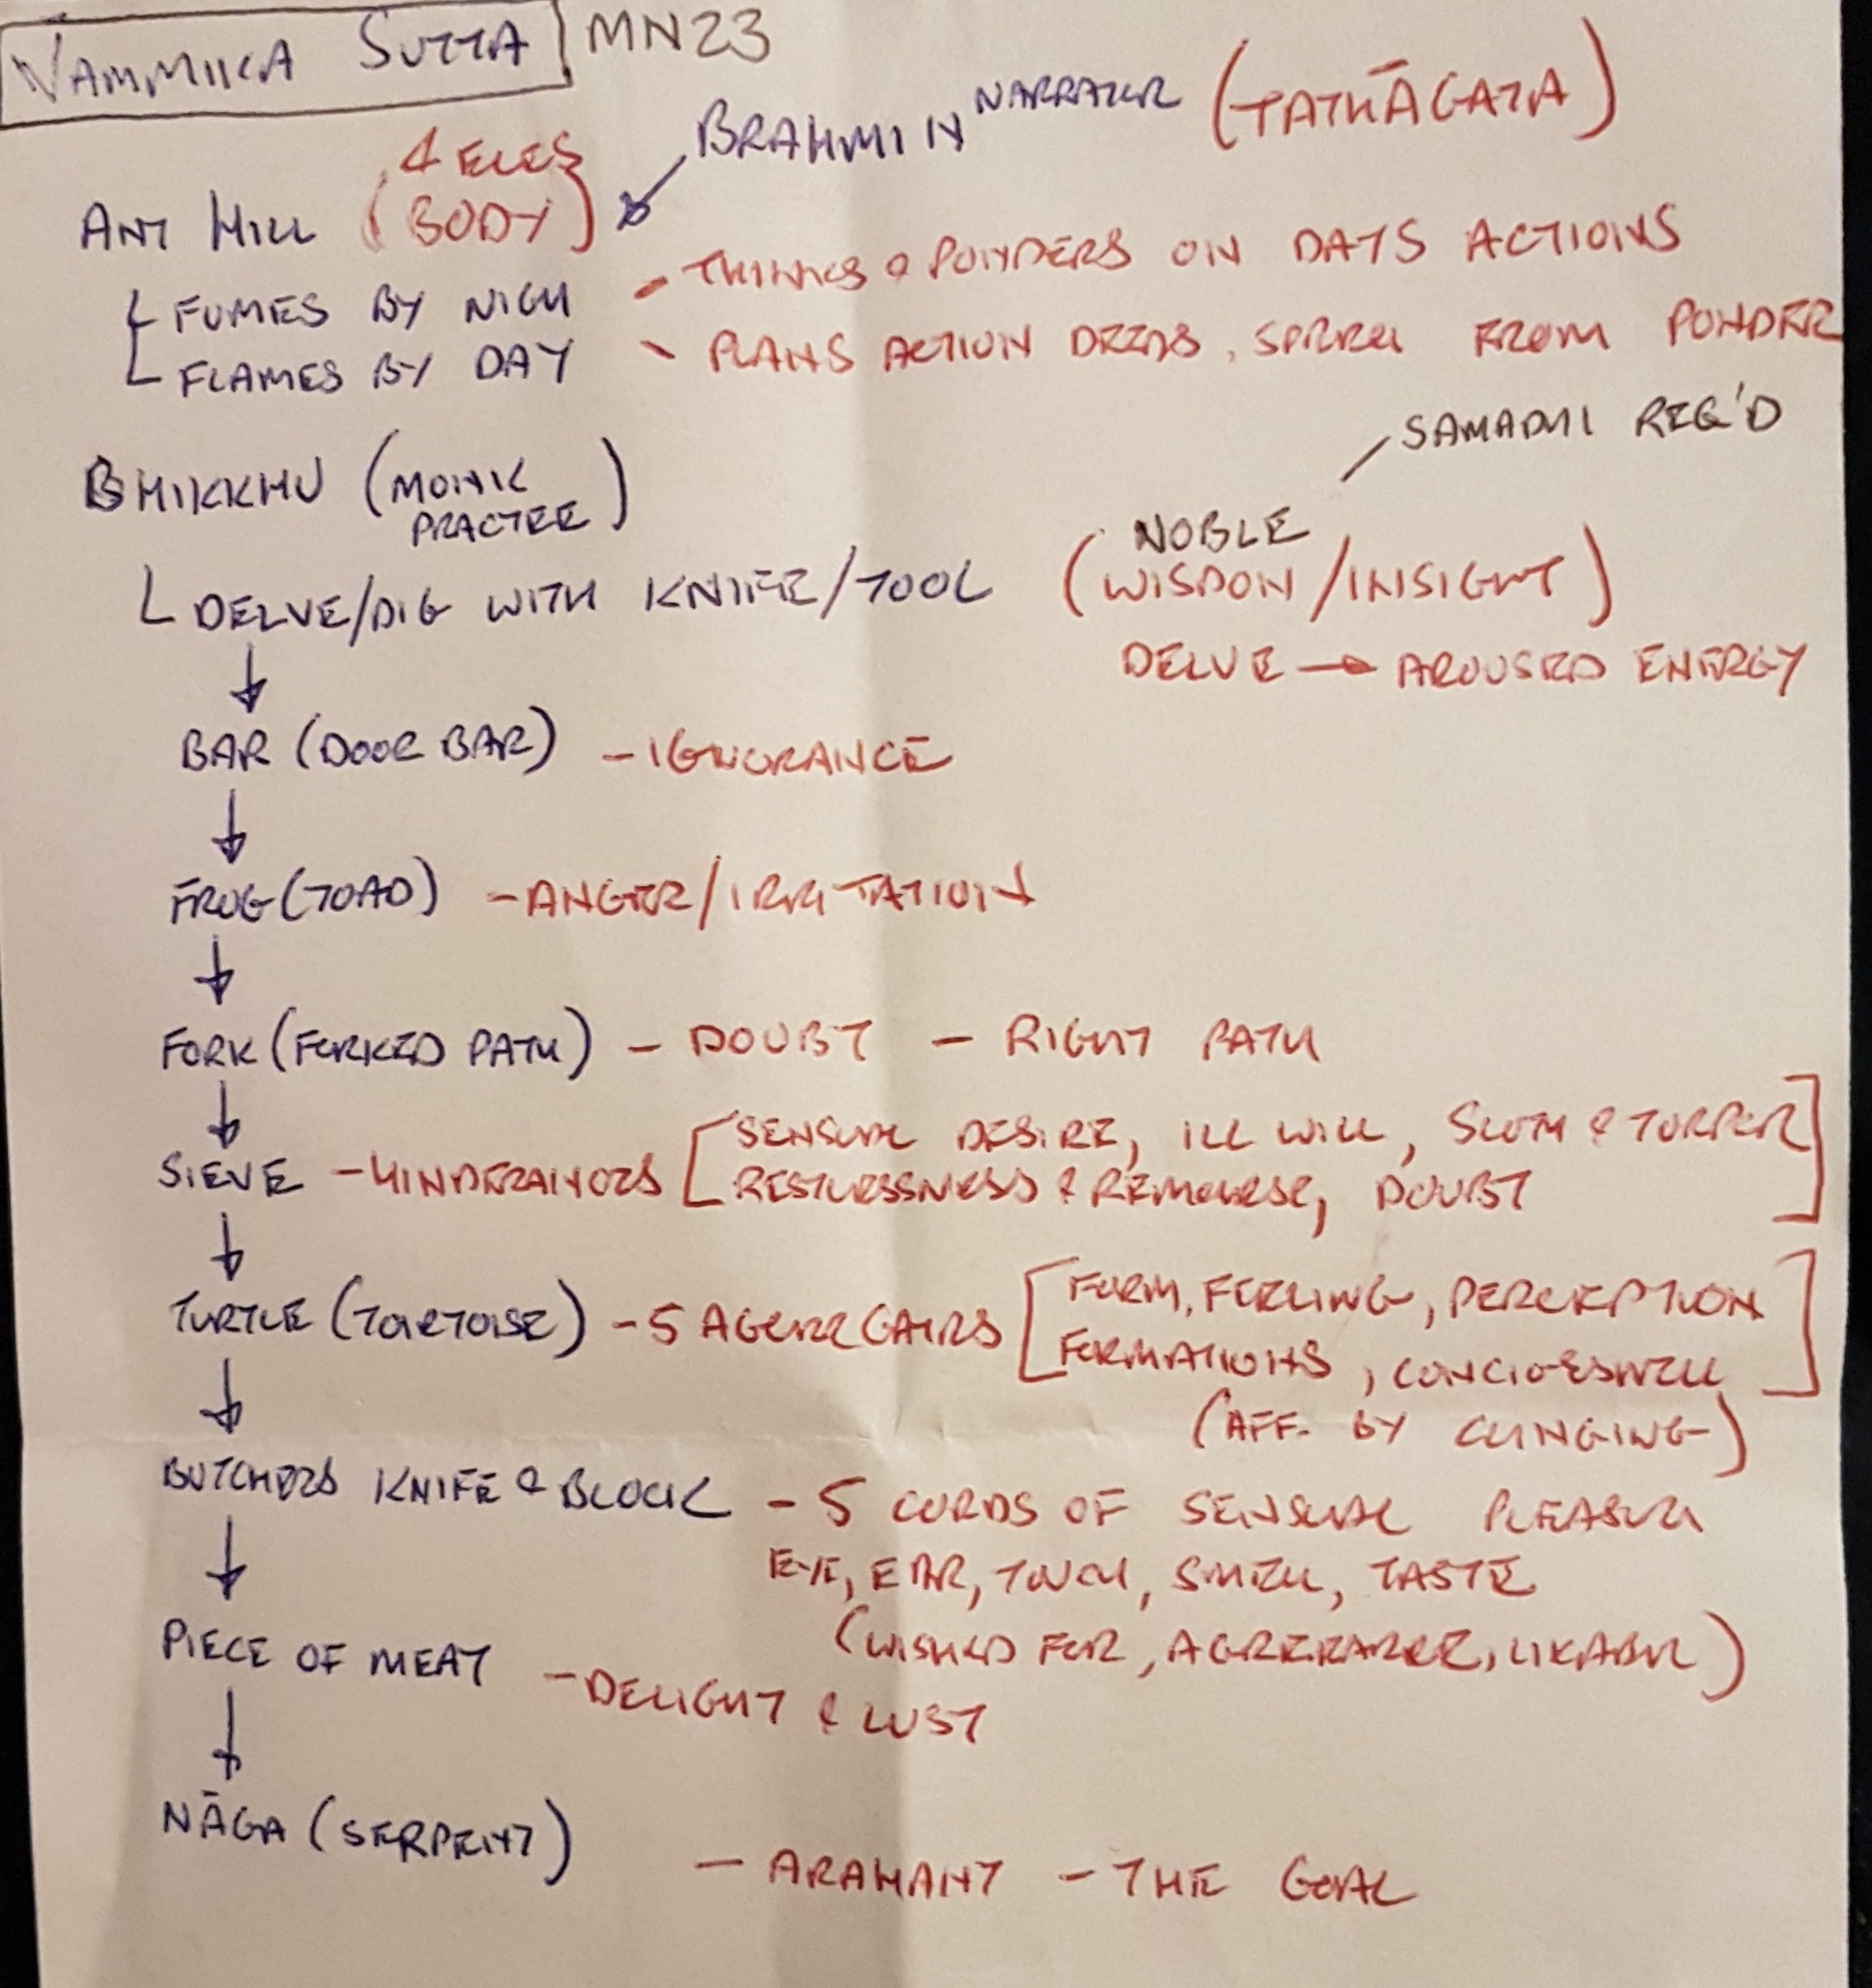 VAMMIIKA SUTTA MN23
BRAHMIN NARRATER (TATHĀGATA)
ANT HILL (4 ELES BODY)
FUMES BY NIGH - THINKS & PONDERS ON DAYS ACTIONS
FLAMES BY DAY - PLANS ACTION DEEDS, FROM PONDER
SAMADHI REQ'D
BHIKKHU (MONK PRACTEE)
DELVE/DIG WITH KNIFE/TOOL (NOBLE WISDON/INSIGHT)
DELVE → AROUSED ENERGY
BAR (DOOR BAR) - IGNORANCE
FROG (TOAD) - ANGER/IRRITATION
FORK (FORKED PATH) - DOUBT - RIGHT PATH
SIEVE - [SENSUAL DESIRE, ILL WILL, SLOTH & TORPOR
RESTLESSNESS & REMOURSE, DOUBT]
TURTLE (TORTOISE) - 5 AGGREGATES [FORM, FEELING, PERCEPTION
FORMATIONS,]
(AFF. BY CLINGING)
BUTCHERS KNIFE & BLOCK - 5 CORDS OF SENSUAL
EYE, EAR, TOUCH, SMELL, TASTE
(WISHED FOR, AGREEABLE, LIKABLE)
PIECE OF MEAT - DELIGHT & LUST
NĀGA (SERPENT) - ARAHANT - THE GOAL